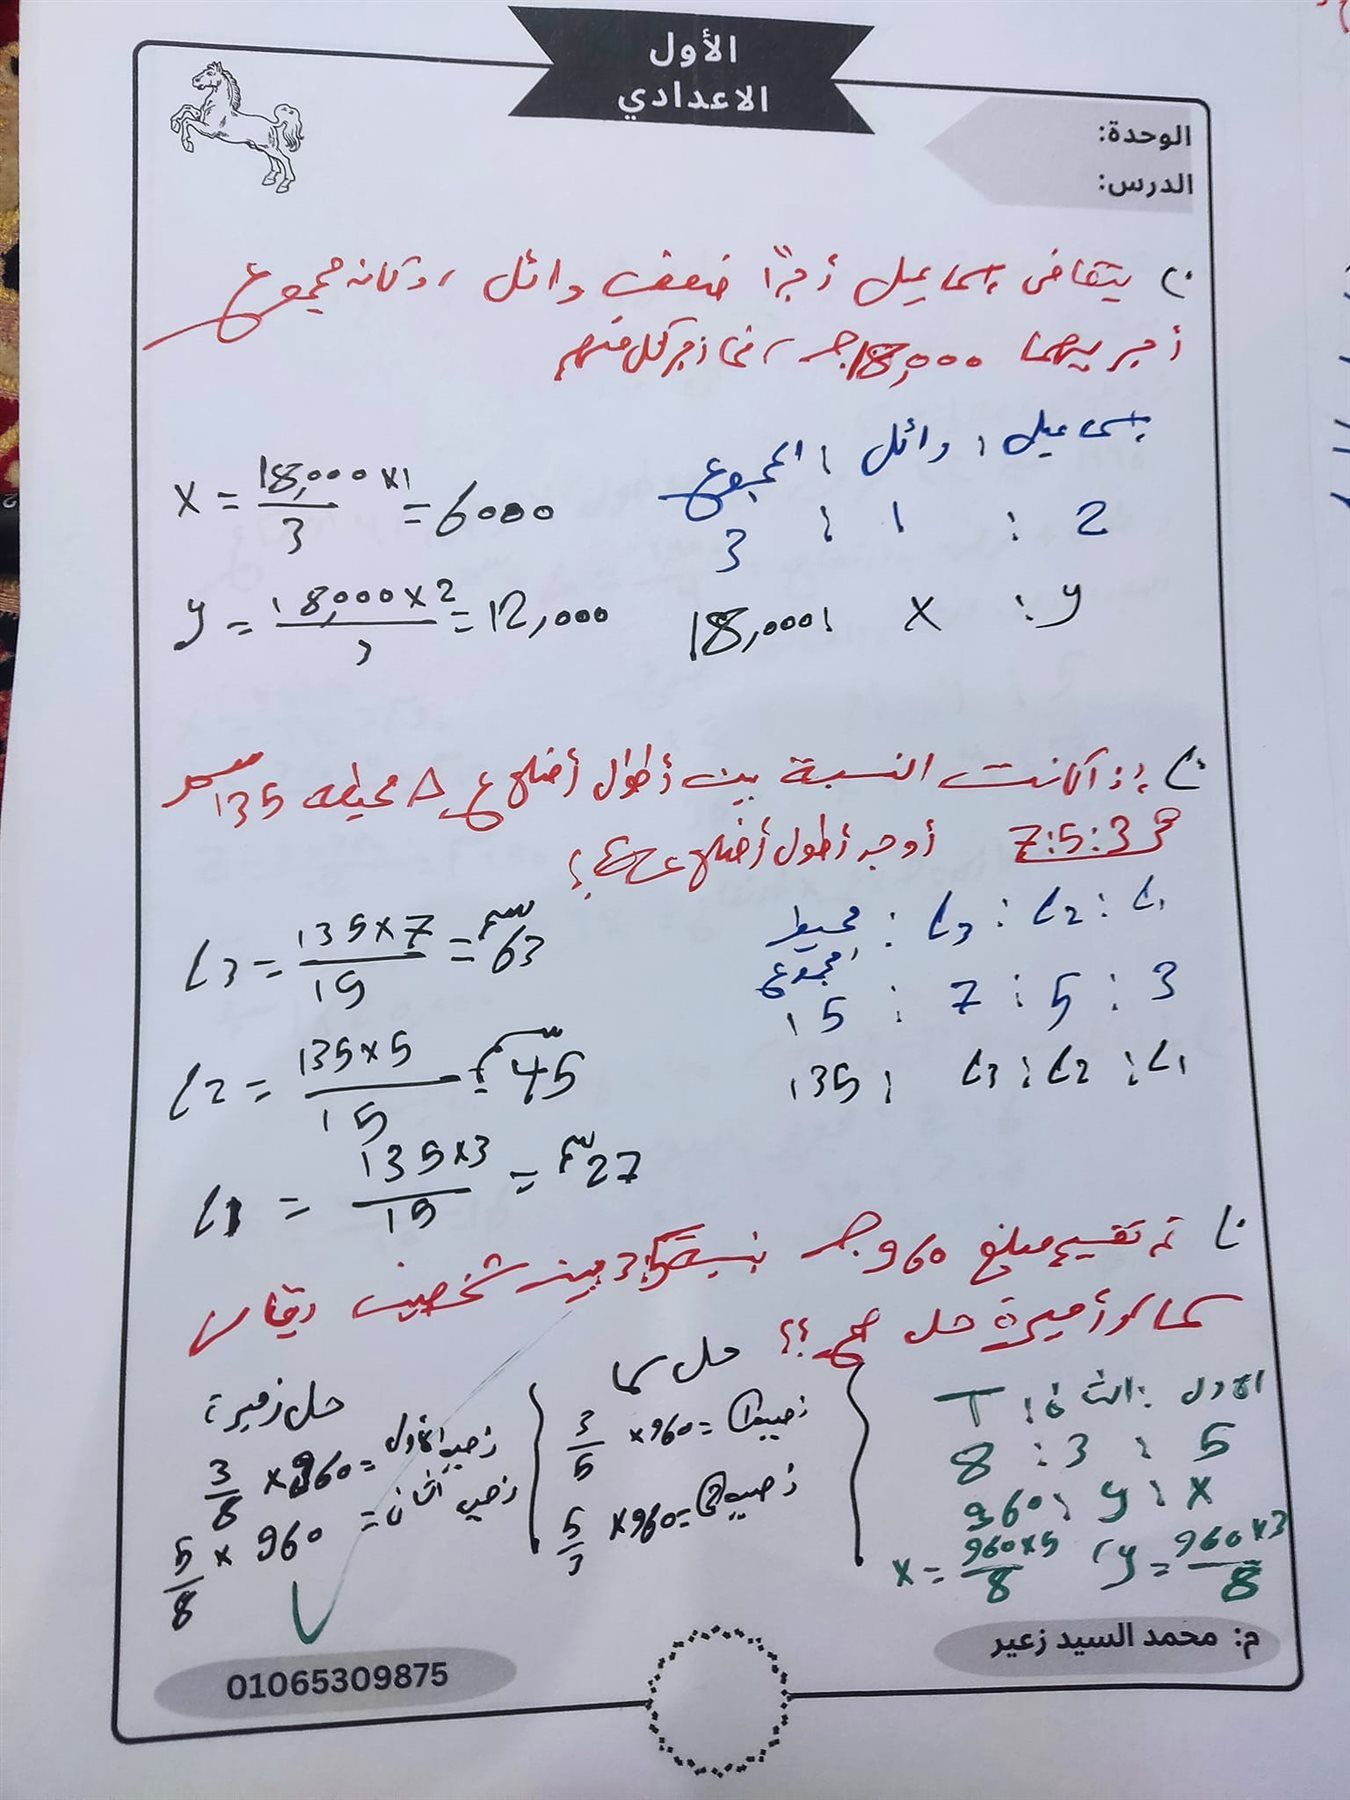 الأول
الاعدادي
الوحدة:
الدرس:
يتقاضى إسماعيل أجرًا ضعف وائل ، وكان مجموع
أجريهما 18,000 جـ ، فما أجر كل منهم
إسماعيل : وائل : المجموع
2 : 1 : 3
y : x : 18,000
x = 18,000 × 1 / 3 = 6000
y = 18,000 × 2 / 3 = 12,000
إذا كانت النسبة بين أطوال أضلاع Δ محيطه 135 سم
7:5:3 أوجد أطول أضلاع
L1 : L2 : L3 : محيط
مجموع
3 : 5 : 7 : 15
L1 : L2 : L3 : 135
L3 = 135×7 / 15 = 63 سم
L2 = 135×5 / 15 = 45 سم
L1 = 135×3 / 15 = 27 سم
تم تقسيم مبلغ 960 جـ بنسبة 3 بين شخصين
سما أو أميرة حل صح ؟؟
الأول : الثاني : T
5 : 3 : 8
x : y : 960
x = 960×5 / 8 ، y = 960×3 / 8
حل سما
نصيب 1 = 960 × 3/5
نصيب 2 = 960 × 5/3
حل أميرة
نصيب الأول = 960 × 3/8
نصيب الثاني = 960 × 5/8
م: محمد السيد زعير
01065309875